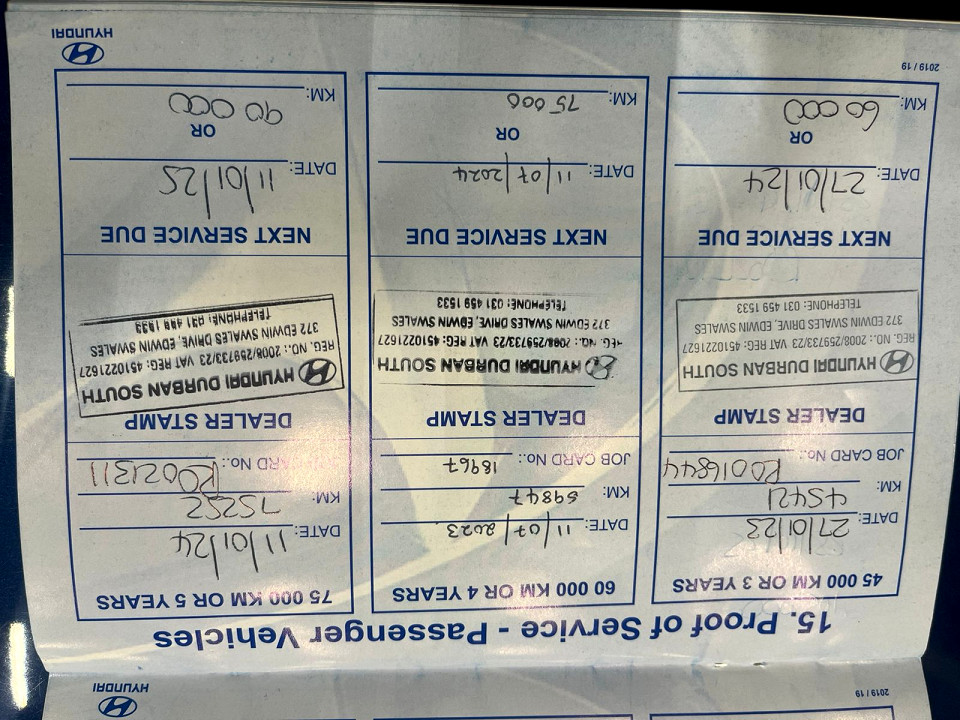 15. Proof of Service - Passenger Vehicles
45 000 KM OR 3 YEARS
DATE: 27/01/23
KM: 45421
JOB CARD No.: RO016844
DEALER STAMP
HYUNDAI DURBAN SOUTH
REG. NO.: 2008/259733/23 VAT REG: 4510221627
372 EDWIN SWALES DRIVE, EDWIN SWALES
TELEPHONE: 031 459 1533
NEXT SERVICE DUE
DATE: 27/01/24
OR
KM: 60 000
60 000 KM OR 4 YEARS
DATE: 11/07/2023
KM: 59847
JOB CARD No.: 18967
DEALER STAMP
HYUNDAI DURBAN SOUTH
REG. NO.: 2008/259733/23 VAT REG: 4510221627
372 EDWIN SWALES DRIVE, EDWIN SWALES
TELEPHONE: 031 459 1533
NEXT SERVICE DUE
DATE: 11/07/2024
OR
KM: 75 000
75 000 KM OR 5 YEARS
DATE: 11/01/24
KM: 75252
CARD No.: RO021311
DEALER STAMP
HYUNDAI DURBAN SOUTH
REG. NO.: 2008/259733/23 VAT REG: 4510221627
372 EDWIN SWALES DRIVE, EDWIN SWALES
TELEPHONE: 031 459 1533
NEXT SERVICE DUE
DATE: 11/01/25
OR
KM: 90 000
2019 / 19
HYUNDAI
2019 / 19
HYUNDAI